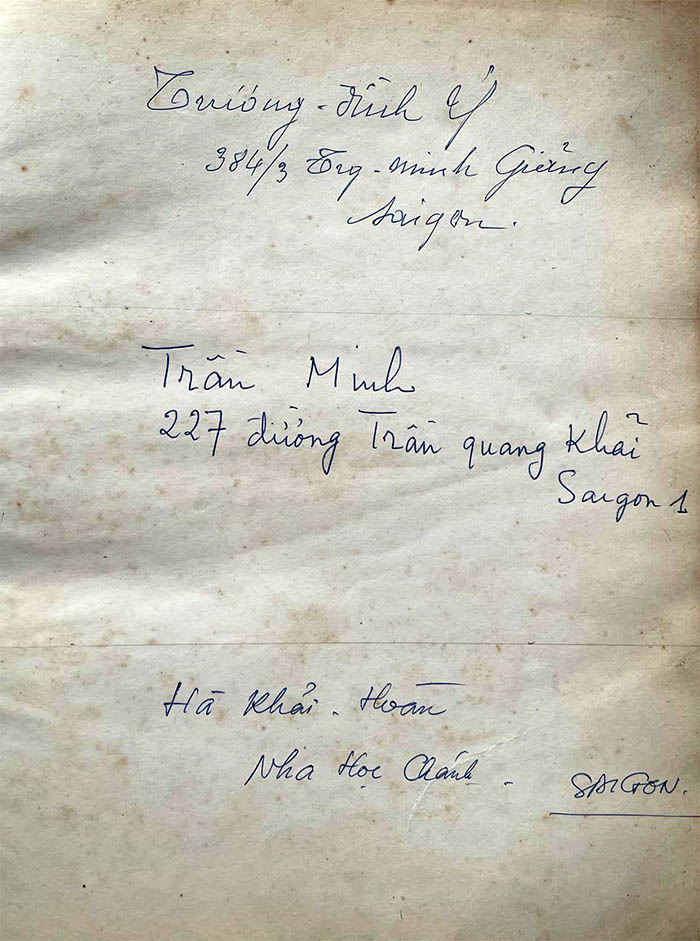 Trương-đình Ý
384/3 Trg-minh Giảng
Saigon.
Trần Minh
227 đường Trần quang Khải
Saigon 1
Hà Khải. Hoàn
Nha Học Chánh.
SAIGON.